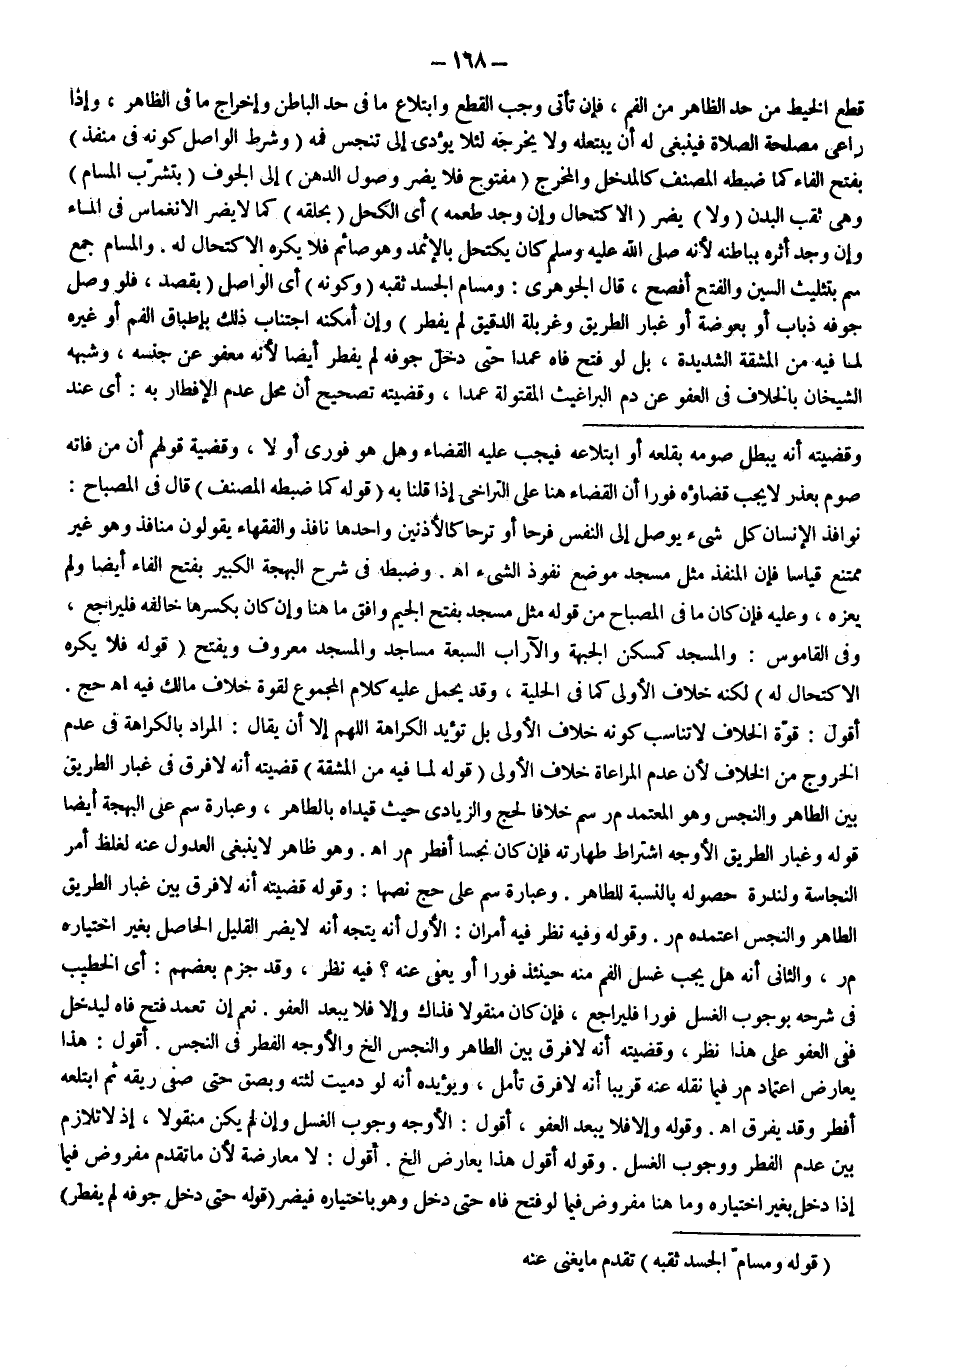 – ١٦٨ –
قطع الخيط من حد الظاهر من الفم ، فإن تأتى وجب القطع وابتلاع ما فى حد الباطن وإخراج ما فى الظاهر ، وإذا
راعى مصلحة الصلاة فينبغى له أن يبتعله ولا يخرجه لئلا يؤدى إلى تنجس فمه ( وشرط الواصل كونه فى منفذ )
بفتح الفاء كما ضبطه المصنف كالمدخل والمخرج ( مفتوح فلا يضر وصول الدهن ) إلى الجوف ( بتشرّب المسام )
وهى ثقب البدن ( ولا ) يضر ( الاكتحال وإن وجد طعمه ) أى الكحل ( بحلقه ) كما لايضر الانغماس فى المـاء
وإن وجد أثره بباطنه لأنه صلى الله عليه وسلم كان يكتحل بالإثمد وهو صائم فلا يكره الاكتحال له . والمسام جمع
سم بتثليث السين والفتح أفصح ، قال الجوهرى : ومسام الجسد ثقبه ( وكونه ) أى الواصل ( بقصد ، فلو وصل
جوفه ذباب أو بعوضة أو غبار الطريق وغربلة الدقيق لم يفطر ) وإن أمكنه اجتناب ذلك بإطباق الفم أو غيره
لمـا فيه من المشقة الشديدة ، بل لو فتح فاه عمدا حتى دخل جوفه لم يفطر أيضا لأنه معفو عن جنسه ، وشبهه
الشيخان بالخلاف فى العفو عن دم البراغيث المقتولة عمدا ، وقضيته تصحيح أن محل عدم الإفطار به : أى عند
وقضيته أنه يبطل صومه بقلعه أو ابتلاعه فيجب عليه القضاء وهل هو فورى أو لا ، وقضية قولهم أن من فاته
صوم بعذر لايجب قضاؤه فورا أن القضاء هنا على التراخى إذا قلنا به ( قوله كما ضبطه المصنف ) قال فى المصباح :
نوافذ الإنسان كل شىء يوصل إلى النفس فرحا أو ترحا كالأذنين واحدها نافذ والفقهاء يقولون منافذ وهو غير
ممتنع قياسا فإن المنفذ مثل مسجد موضع نفوذ الشىء اهـ . وضبطه فى شرح البهجة الكبير بفتح الفاء أيضا ولم
يعزه ، وعليه فإن كان ما فى المصباح من قوله مثل مسجد بفتح الجيم وافق ما هنا وإن كان بكسرها خالفه فليراجع ،
وفى القاموس : والمسجد كمسكن الجبهة والآراب السبعة مساجد والمسجد معروف ويفتح ( قوله فلا يكره
الاكتحال له ) لكنه خلاف الأولى كما فى الحلية ، وقد يحمل عليه كلام المجموع لقوة خلاف مالك فيه اهـ حج .
أقول : قوّة الخلاف لاتناسب كونه خلاف الأولى بل تؤيد الكراهة اللهم إلا أن يقال : المراد بالكراهة فى عدم
الخروج من الخلاف لأن عدم المراعاة خلاف الأولى ( قوله لمـا فيه من المشقة ) قضيته أنه لافرق فى غبار الطريق
بين الطاهر والنجس وهو المعتمد مر سم خلافا لحج والزيادى حيث قيداه بالطاهر ، وعبارة سم على البهجة أيضا
قوله وغبار الطريق الأوجه اشتراط طهارته فإن كان نجسا أفطر مر اهـ . وهو ظاهر لاينبغى العدول عنه لغلظ أمر
النجاسة ولندرة حصوله بالنسبة للطاهر . وعبارة سم على حج نصها : وقوله قضيته أنه لافرق بين غبار الطريق
الطاهر والنجس اعتمده مر . وقوله وفيه نظر فيه أمران : الأول أنه يتجه أنه لايضر القليل الحاصل بغير اختياره
مر ، والثانى أنه هل يجب غسل الفم منه حينئذ فورا أو يعفى عنه ؟ فيه نظر ، وقد جزم بعضهم : أى الخطيب
فى شرحه بوجوب الغسل فورا فليراجع ، فإن كان منقولا فذاك وإلا فلا يبعد العفو . نعم إن تعمد فتح فاه ليدخل
ففى العفو على هذا نظر ، وقضيته أنه لافرق بين الطاهر والنجس الخ والأوجه الفطر فى النجس . أقول : هذا
يعارض اعتماد مر فيما نقله عنه قريبا أنه لافرق تأمل ، ويؤيده أنه لو دميت لثته وبصق حتى صفى ريقه ثم ابتلعه
أفطر وقد يفرق اهـ . وقوله وإلا فلا يبعد العفو ، أقول : الأوجه وجوب الغسل وإن لم يكن منقولا ، إذ لاتلازم
بين عدم الفطر ووجوب الغسل . وقوله أقول هذا يعارض الخ . أقول : لا معارضة لأن ماتقدم مفروض فيما
إذا دخل بغير اختياره وما هنا مفروض فيما لو فتح فاه حتى دخل وهو باختياره فيضر (قوله حتى دخل جوفه لم يفطر)
( قوله ومسامّ الجسد ثقبه ) تقدم مايغنى عنه